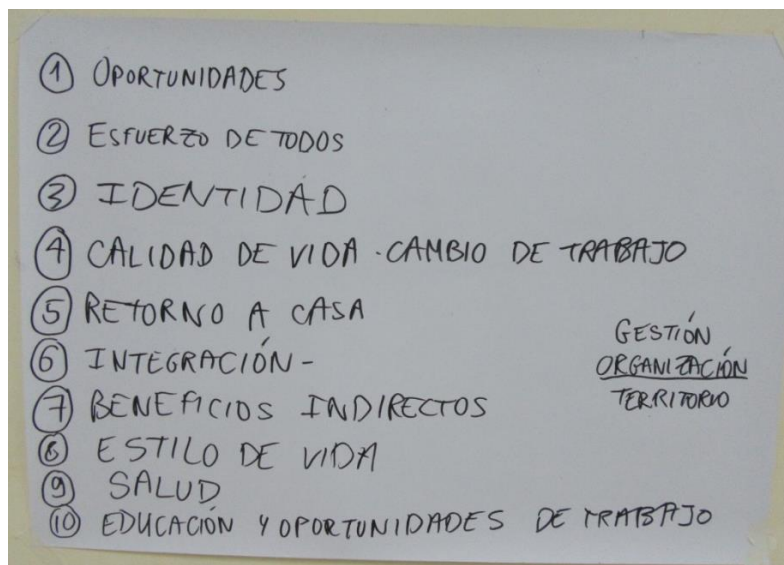 ① OPORTUNIDADES
② ESFUERZO DE TODOS
③ IDENTIDAD
④ CALIDAD DE VIDA · CAMBIO DE TRABAJO
⑤ RETORNO A CASA
⑥ INTEGRACIÓN -
⑦ BENEFICIOS INDIRECTOS
⑧ ESTILO DE VIDA
⑨ SALUD
⑩ EDUCACIÓN Y OPORTUNIDADES DE TRABAJO
GESTIÓN
ORGANIZACIÓN
TERRITORIO